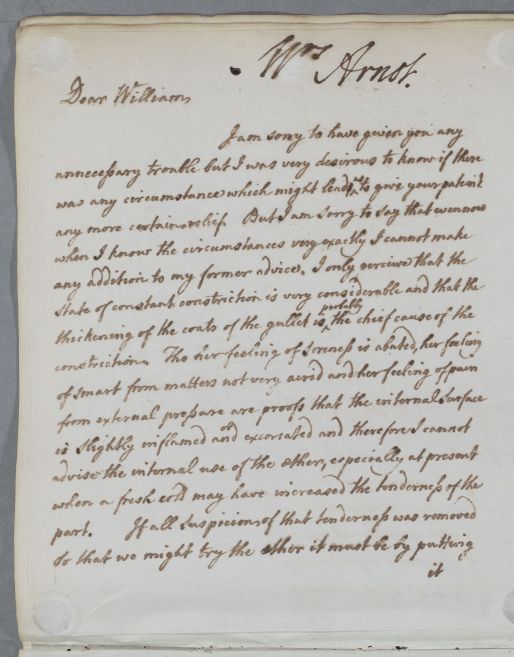 Mrs Arnot.
Dear William
I am sorry to have given you any
unnecessary trouble but I was very desirous to know if there
was any circumstance which might lead me to give your patient
any more certain relief. But I am sorry to say that even now
when I know the circumstances very exactly I cannot make
any addition to my former advice. I only perceive that the
state of constant constriction is very considerable and that the
thickening of the coats of the gullet is probably the chief cause of the
constriction. Tho her feeling of soreness is abated, her feeling
of smart from matters not very acrid and her feeling of pain
from external pressure are proofs that the internal surface
is slightly inflamed or excoriated and therefore I cannot
advise the internal use of the æther, especially at present
when a fresh cold may have increased the tenderness of the
part. If all suspicion of that tenderness was removed
so that we might try the æther it must be by putting
it